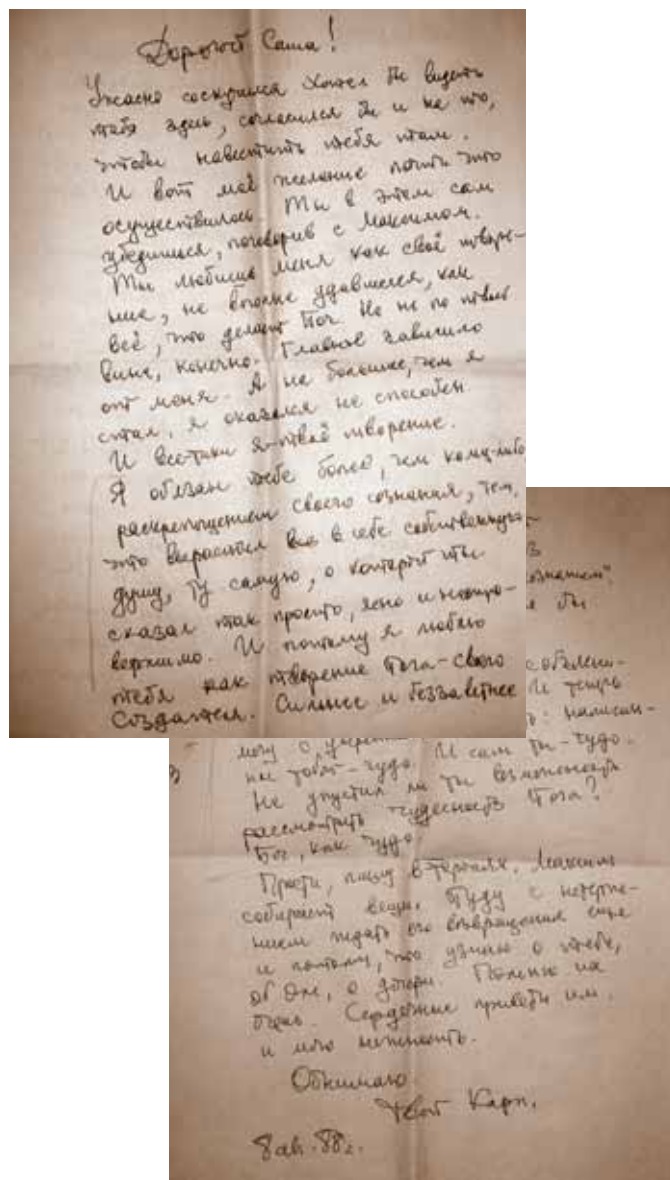 Дорогой Саша!
Ужасно соскучился Хотел бы видеть
тебя здесь, согласился бы и на то,
чтобы навестить тебя там.
И вот моё желание почти что
осуществилось. Ты в этом сам
убедишься, поговорив с Максимом.
Ты любишь меня как своё творе-
ние, не вполне удавшееся, как
всё, что делает Бог. Но не по твоей
вине, конечно. Главное зависило
от меня. А на большее, чем я
стал, я оказался не способен
И все-таки я-твоё творение.
Я обязан тебе более, чем кому-либо
раскрепощением своего сознания, тем,
что вырастил в себе собственную
душу, ту самую, о которой ты
сказал так просто, ясно и неопро-
вержимо. И потому я люблю
тебя как творение Бога-своего
Создателя. Сильнее и беззаветнее
ознанием".
я бы
И теперь
написан-
могу о
ное тобой-чудо. И сам ты-чудо.
Не упустил ли ты возможность
рассмотреть чудесность Бога?
Бог, как чудо
Прости, пишу впопыхах. Максим
собирает вещи. Буду с нетерпе-
нием ждать его возвращения еще
и потому, что узнаю о тебе,
об Оле, о дочери. Помню их
очень. Сердечные приветы им
и мою нежность.
Обнимаю
Твой Карп.
8 ав. 88 г.